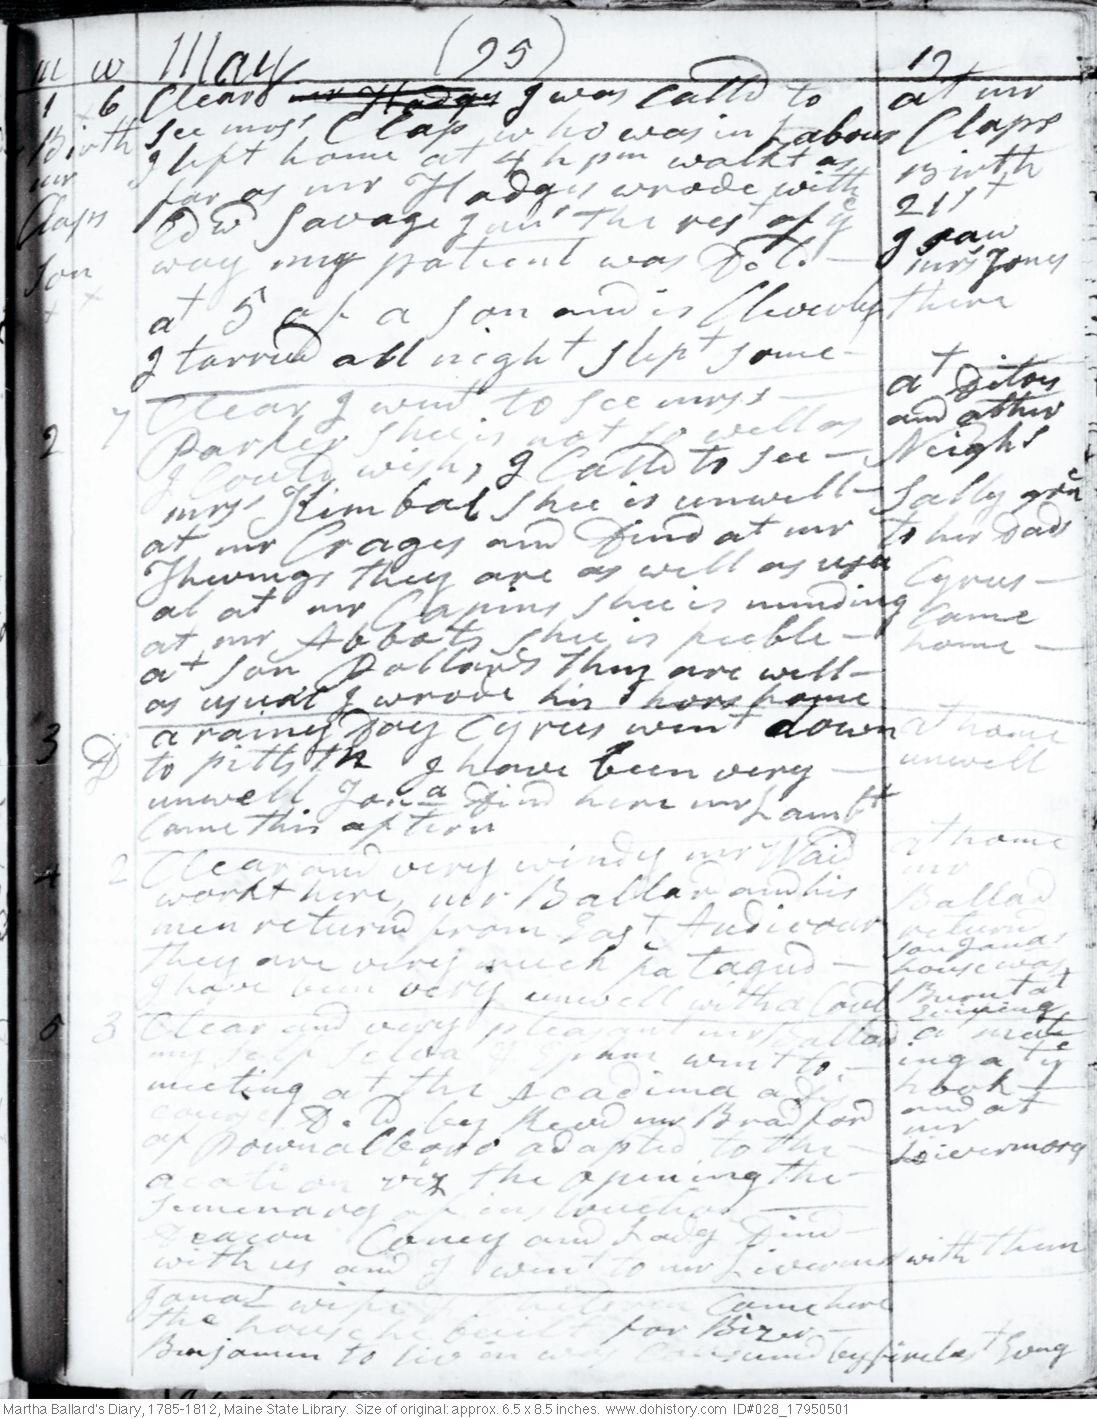 M W May (25) 12
1 6 Clear mr Hodges I was Calld to at mr
Birth see mrss Clap who was in Labour Claps
mr I left home at 4 h pm walkt as Birth
Claps far as mr Hodges wrode with 21st
Son Edwd Savage Junr the rest of ye I saw
way my patient was D. L. — mrs Jones
at 5 of a son and is Cleverly there
I tarried all night slept some —
2 7 Clear I went to see mrss — at Ditoes
Parker shee is not so well as and other
I Could wish, I Calld to see — Neighs
mrss Kimbal shee is unwell — Sally gon
at mr Crages and Dind at mr to her Dads
Thwings they are as well as usu Cyrus —
al at mr Capins shee is minding Came
at mr Abbots shee is feeble — home —
at son Pollards they are well —
as usual I wrode his hors home
3 D a rainy Day Cyrus went down at home
to pittstn I have been very — unwell
unwell Jona Dind here mr Lambt
Came this aftern
4 2 Clear and very windy mr Waid at home
workt here, mr Ballard and his mr
men returnd from East Andivour Ballad
they are very much fatagud — returnd
I have been very unwell with a Could son Jonas
house was
Burnt at
Evining
5 3 Clear and very pleasant mr Ballad a meet
my self went to — ing at ye
meeting at the Acadima a dis hook —
course D. D by Revd mr Bradford and at
of Pownalboro adapted to the — mr
acation viz the opening the — Livermors
Semenary of instruction —
Deacon Coney and Lady Dind —
with us and I went to mr Livermors with them
Jonas wife Came here
the house he built for Bizer —
Benjamin to live in was Consumd by fire last Evng
Martha Ballard's Diary, 1785-1812, Maine State Library. Size of original: approx. 6.5 x 8.5 inches. www.dohistory.com ID#028_17950501